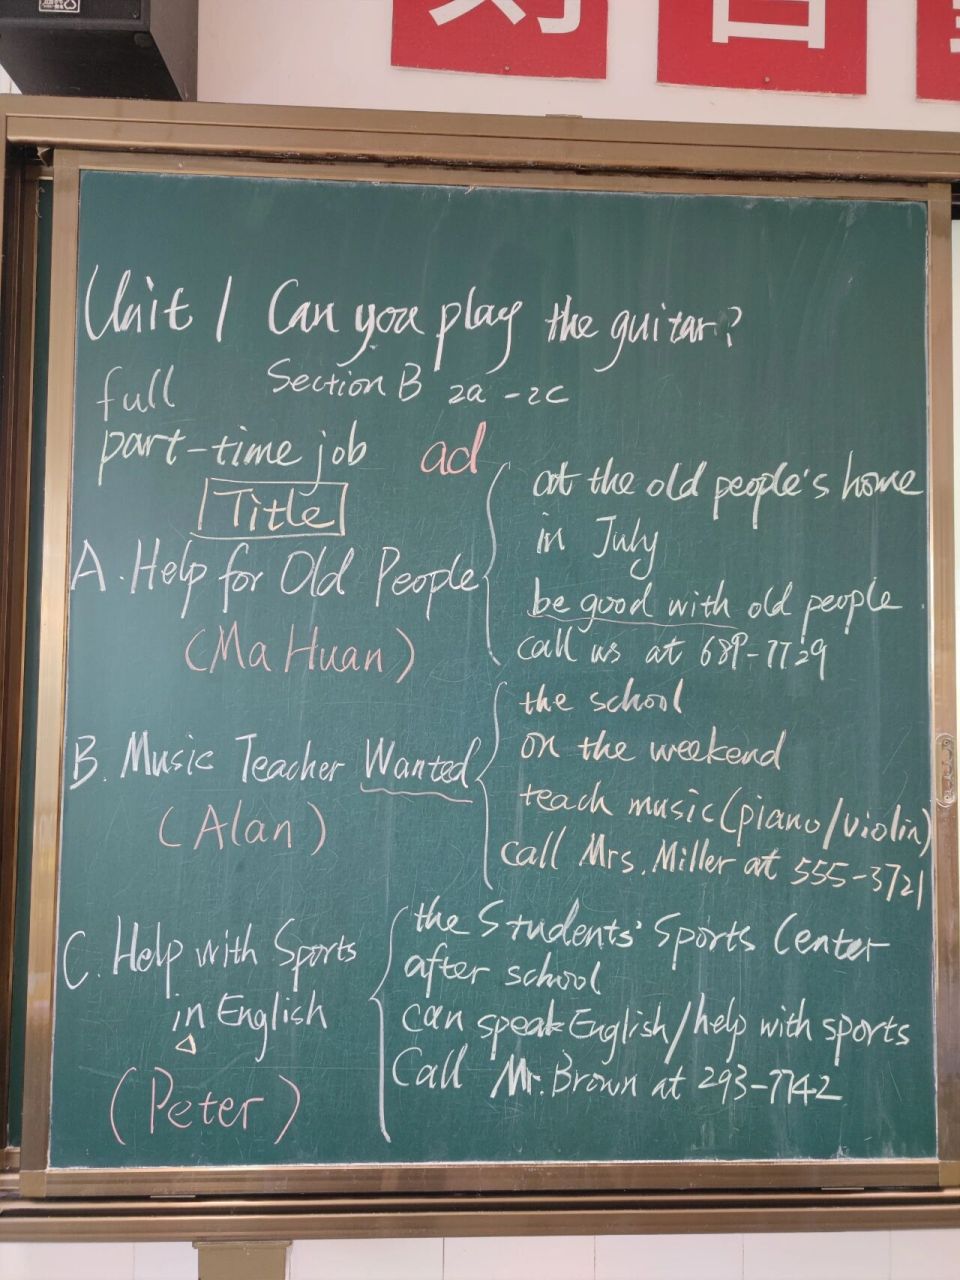 Unit 1 Can you play the guitar?
Section B 2a-2c
full
part-time job ad
Title
A. Help for Old People
(Ma Huan)
at the old people's home
in July
be good with old people.
call us at 689-7729
B. Music Teacher Wanted
(Alan)
the school
on the weekend
teach music (piano/violin)
call Mrs. Miller at 555-3721
C. Help with Sports
in English
(Peter)
the Students' Sports Center
after school
can speak English/help with sports
Call Mr. Brown at 293-7742